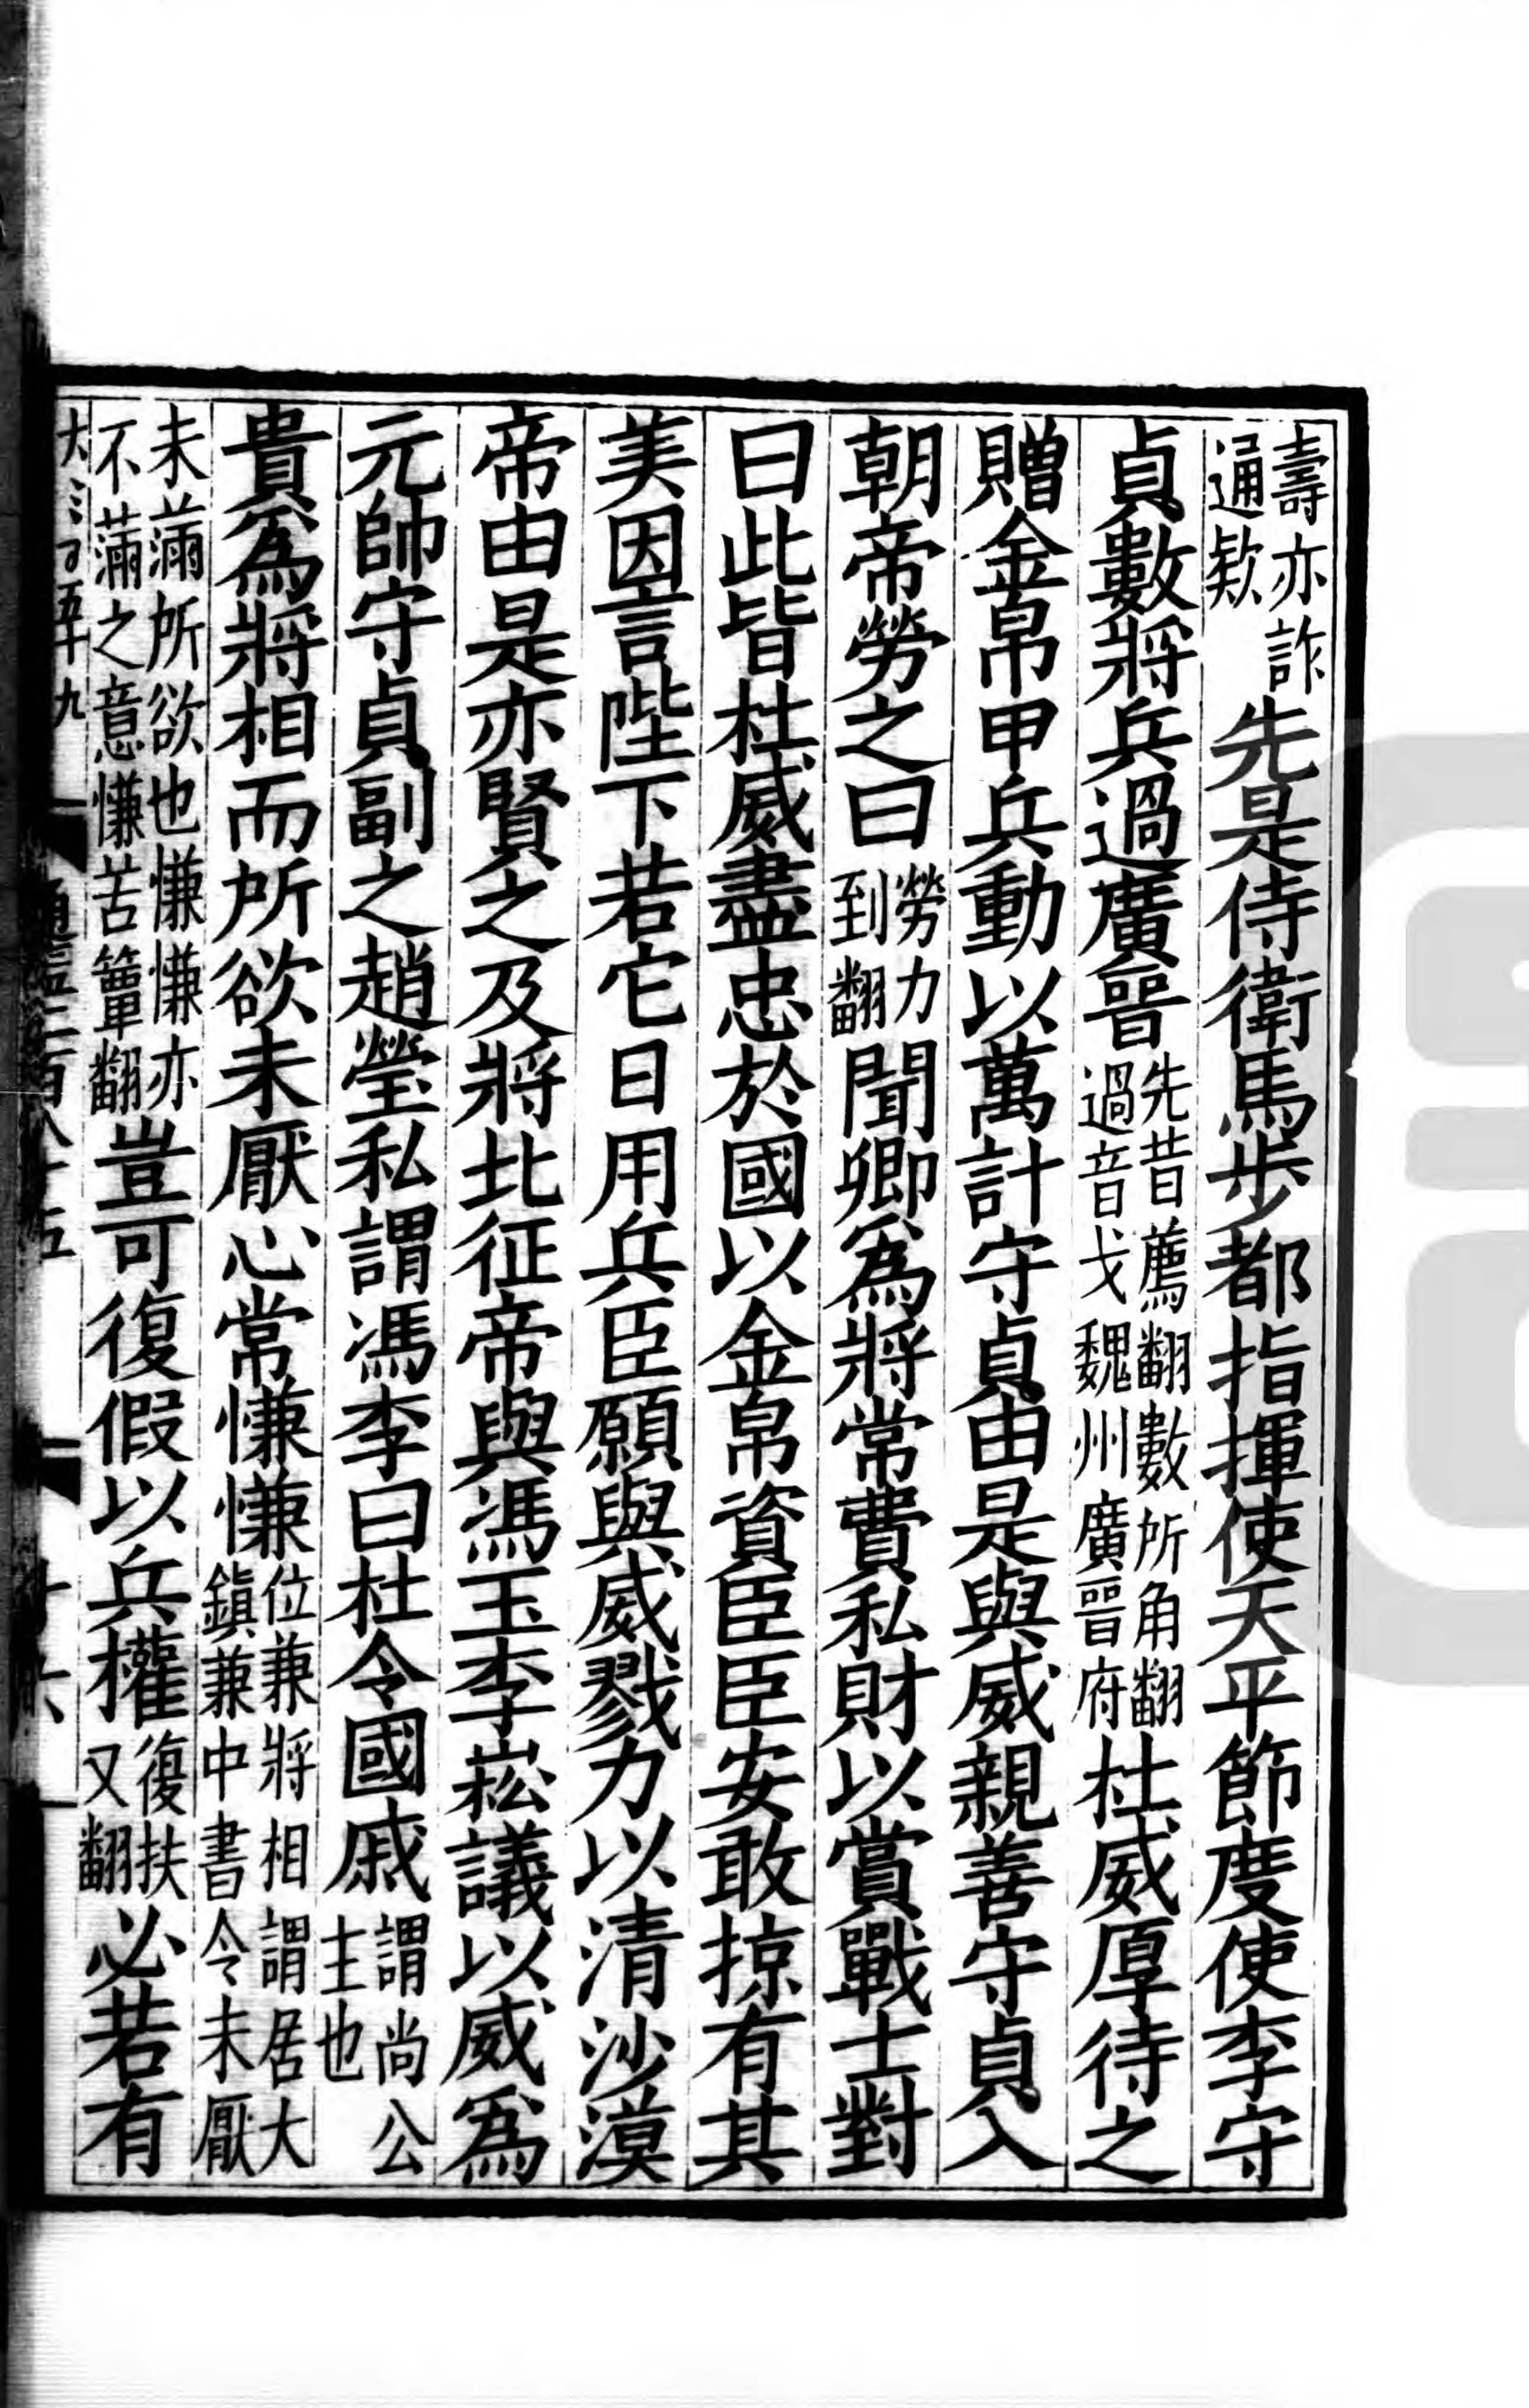 壽亦詐通欵先是侍衛馬步都指揮使天平節度使李守
貞數將兵過廣晉先昔薦翻數所角翻過音戈魏州廣晉府杜威厚待之
贈金帛甲兵動以萬計守貞由是與威親善守貞入
朝帝勞之曰勞力到翻聞卿為將常費私財以賞戰士對
曰此皆杜威盡忠於國以金帛資臣臣安敢掠有其
美因言陛下若它日用兵臣願與威戮力以清沙漠
帝由是亦賢之及將北征帝與馮玉李崧議以威為
元帥守貞副之趙瑩私謂馮李曰杜令國戚謂尚公主也
貴為將相而所欲未厭心常慊慊位兼將相謂居大鎮兼中書令未厭
未滿所欲也慊慊亦不滿之意慊苦簟翻豈可復假以兵權復扶又翻必若有